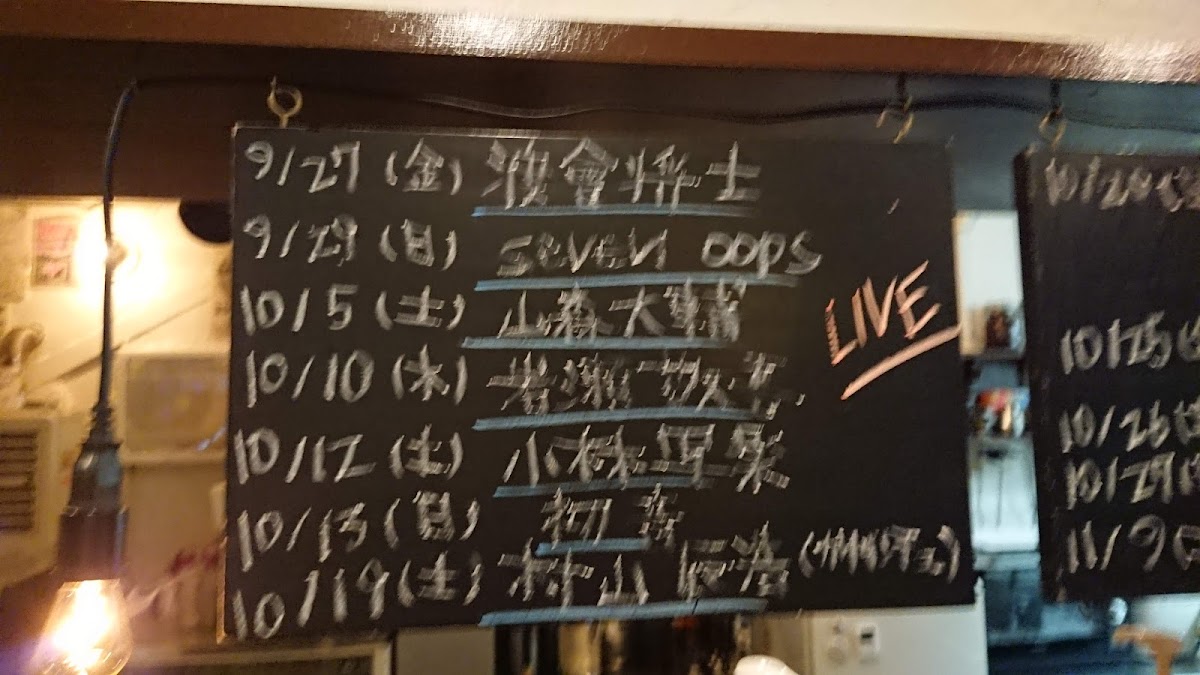 9/27 (金) 渡會将士
9/29 (日) seven oops
10/5 (土) 山森大輔
10/10 (木) 岩瀬敬吾
10/12 (土) 小林
10/13 (日)
10/19 (土) 村山辰浩
LIVE
10/25
10/26
10/27
11/9